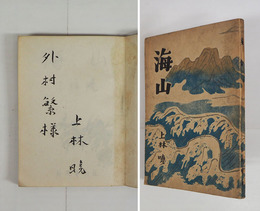 外村繁様
上林暁
海山
上林暁